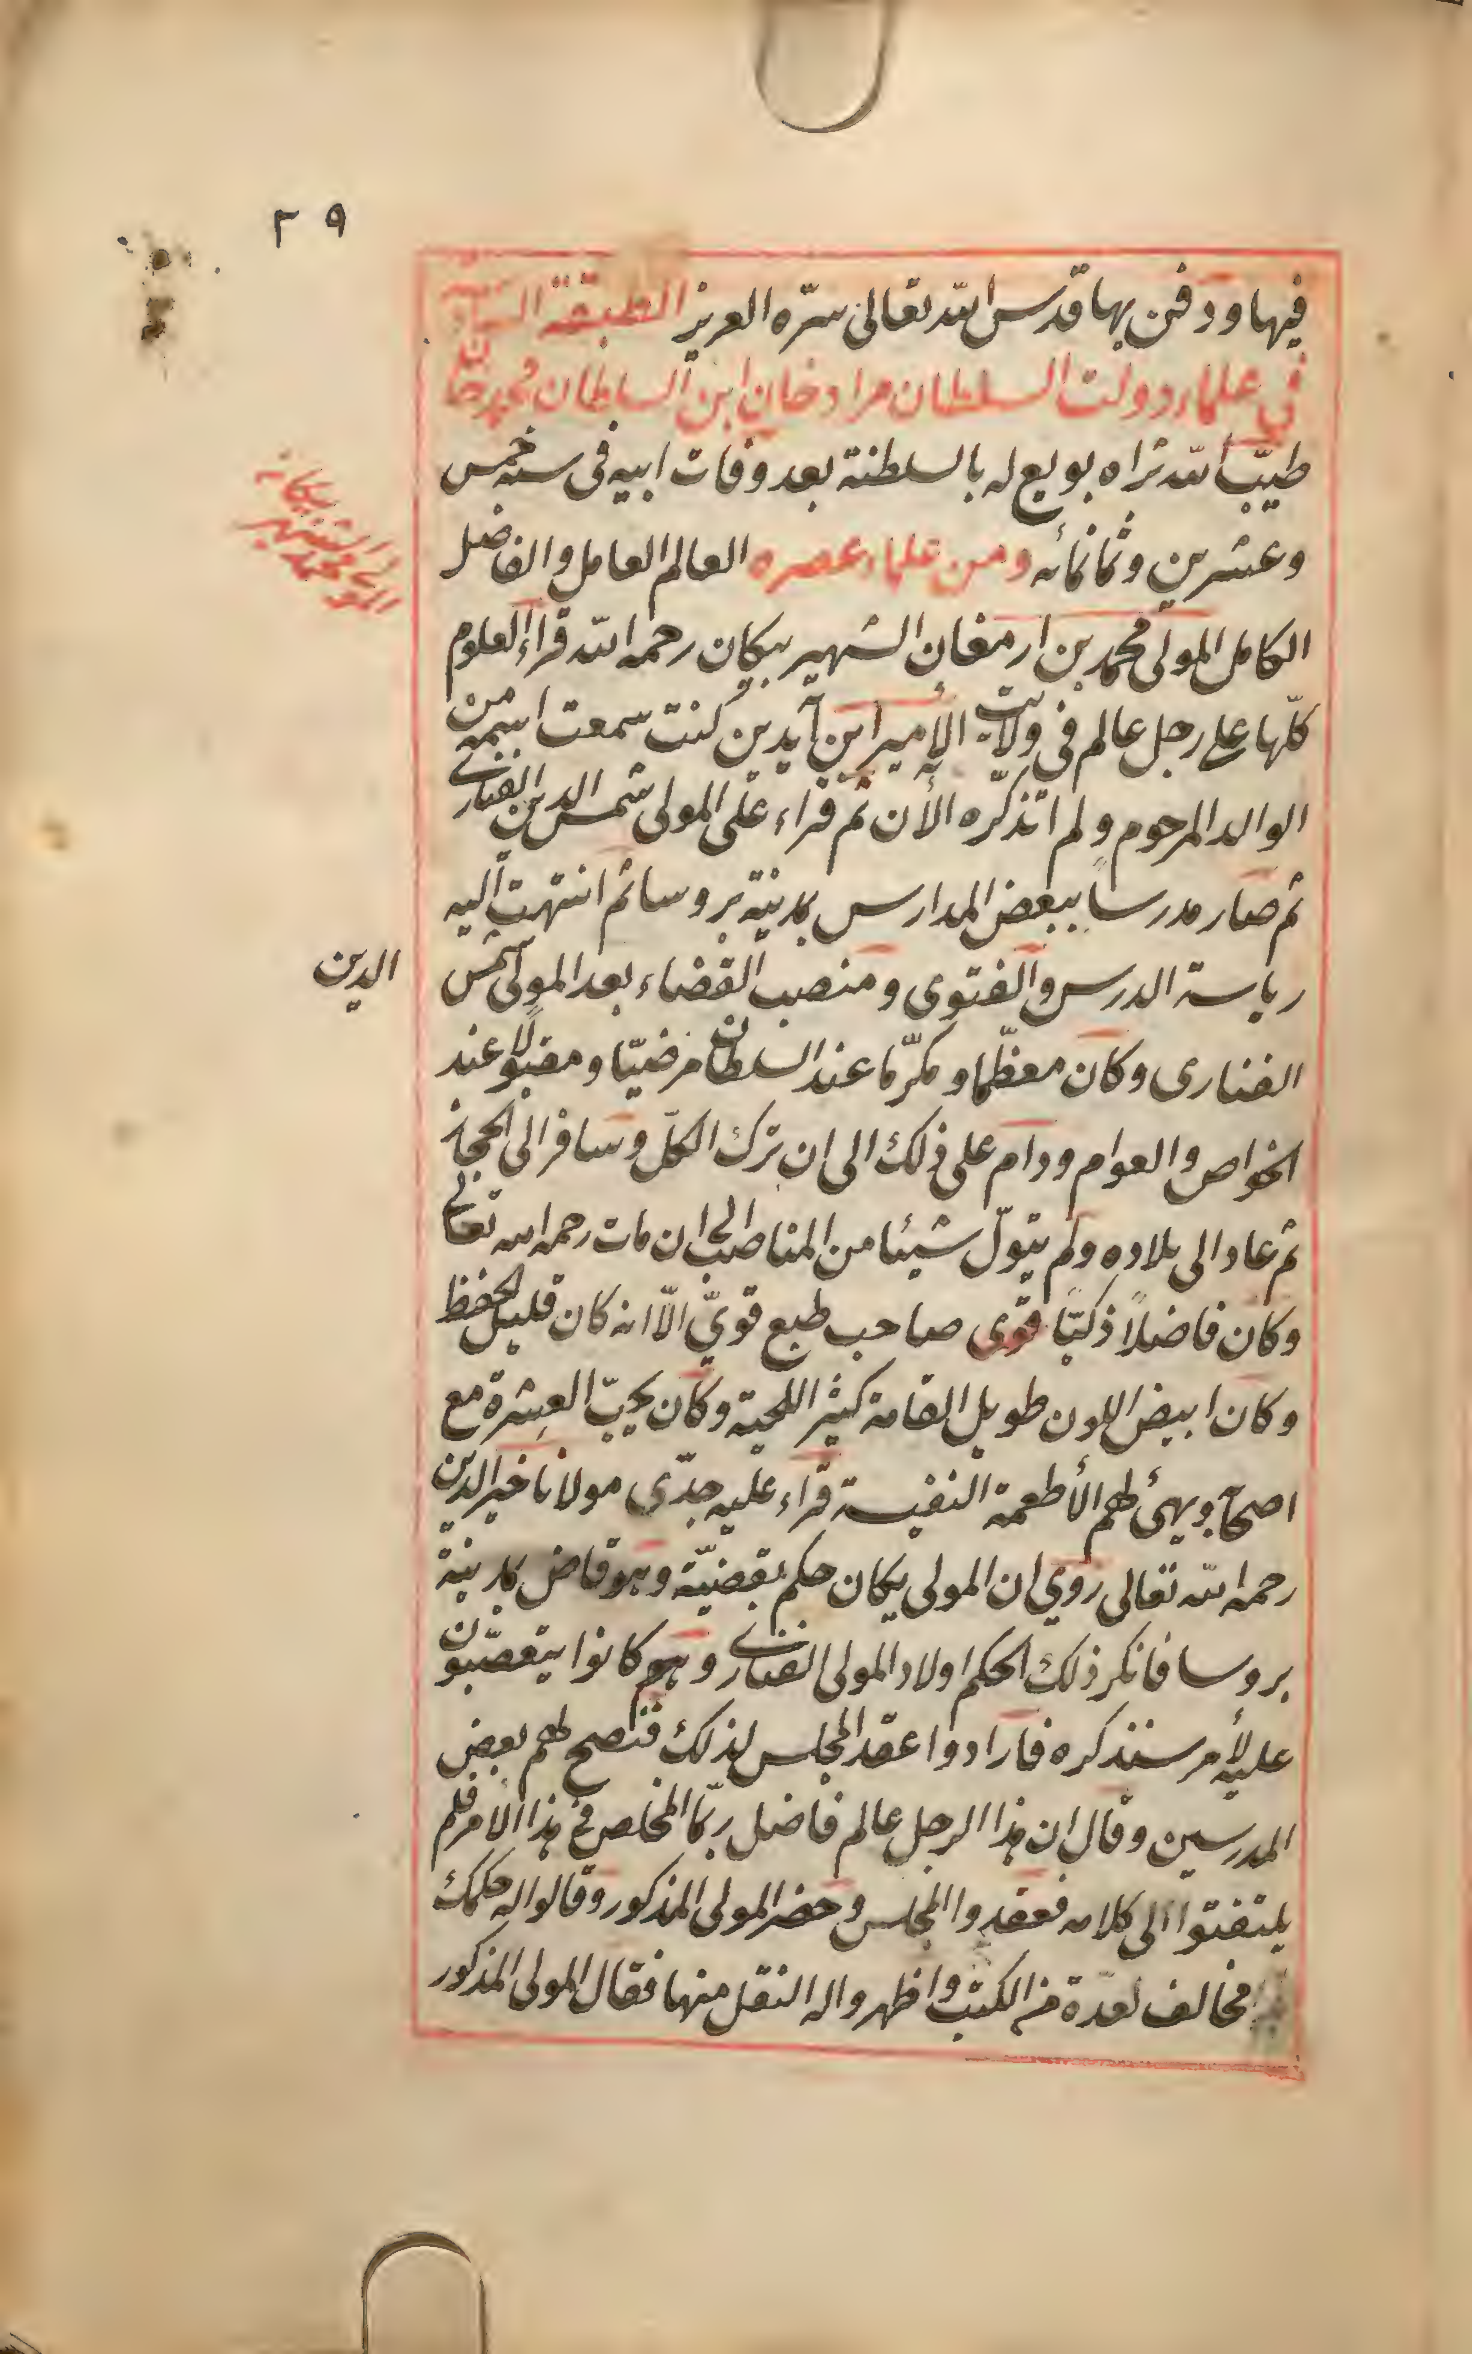 ٢٩
فيها ودفن بها قدس الله تعالى سرّه العزيز الطبقة
في علماء دولت السلطان مراد خان ابن السلطان محمد خان
طيّب الله ثراه بويع له بالسلطنة بعد وفات ابيه في سنه خمس
وعشرين وثمانمائه ومن علماء عصره العالم العامل والفاضل
الكامل المولى محمد بن ارمغان الشهير بيكان رحمه الله قراء العلوم
كلّها على رجل عالم في ولايت الأمير ابن آيدين كنت سمعت اسمه من
الوالد المرحوم ولم اتذكّره الأن ثم قراء على المولى شمس الدين الفنارى
ثم صار مدرسا ببعض المدارس بمدينة بروسا ثم انتهت اليه
رياسة الدرس والفتوى ومنصب القضاء بعد المولى شمس
الدين
الفنارى وكان معظّما ومكرّما عند السلطان مرضيّا ومقبولا عند
الخواص والعوام ودام على ذلك الى ان ترك الكلّ وسافر الى الحجاز
ثم عاد الى بلاده ولم يتولّ شيئا من المناصب الى ان مات رحمه الله تعالى
وكان فاضلاً ذكيّا قوى صاحب طبع قويّ الّا انه كان قليل الحفظ
وكان ابيض اللون طويل القامة كثير اللحية وكان يحبّ العشرة مع
اصحابه ويهئ لهم الأطعمة النفيسة قراء عليه جدّى مولانا خير الدين
رحمه الله تعالى روي ان المولى يكان حكم بقضيّة وهو قاض بمدينة
بروسا فانكر ذلك الحكم اولاد المولى الفنارى وهم كانوا يتعصّبون
عليه لأمر سنذكره فارادوا عقد المجلس لذلك فنصح لهم بعض
المدرسين وقال ان هذا الرجل عالم فاضل ربّما المخلص في هذا الامر فلم
يلتفتوا الى كلامه فعقدوا المجلس وحضر المولى المذكور وقالوا له حكمك
مخالف لعدّة من الكتب واظهروا له النقل منها فقال المولى المذكور